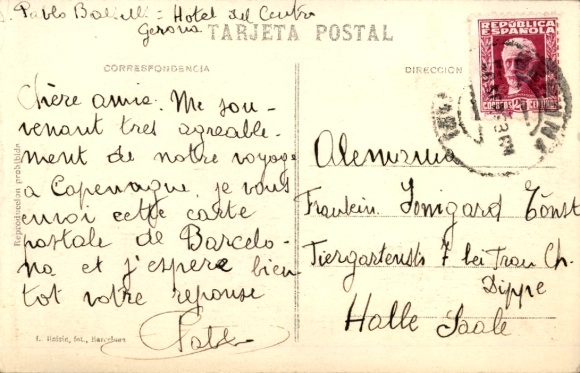 Pablo = Hotel del Centro
Gerona
TARJETA POSTAL
CORRESPONDENCIA
DIRECCION
REPUBLICA
ESPAÑOLA
CORREOS 25 CENTIMOS
Chère amie. Me sou-
venant tres agreable-
ment de notre voyage
a Copenague, je vous
envoi cette carte
postale de Barcelo-
na et j'espere bien
tot votre reponse
Pablo
Alemania
Fraulein Irmgard
Tiergartenstr 7 bei Frau Ch.
Dippe
Halle Saale
Reproduccion prohibida
L. Roisin, fot., Barcelona